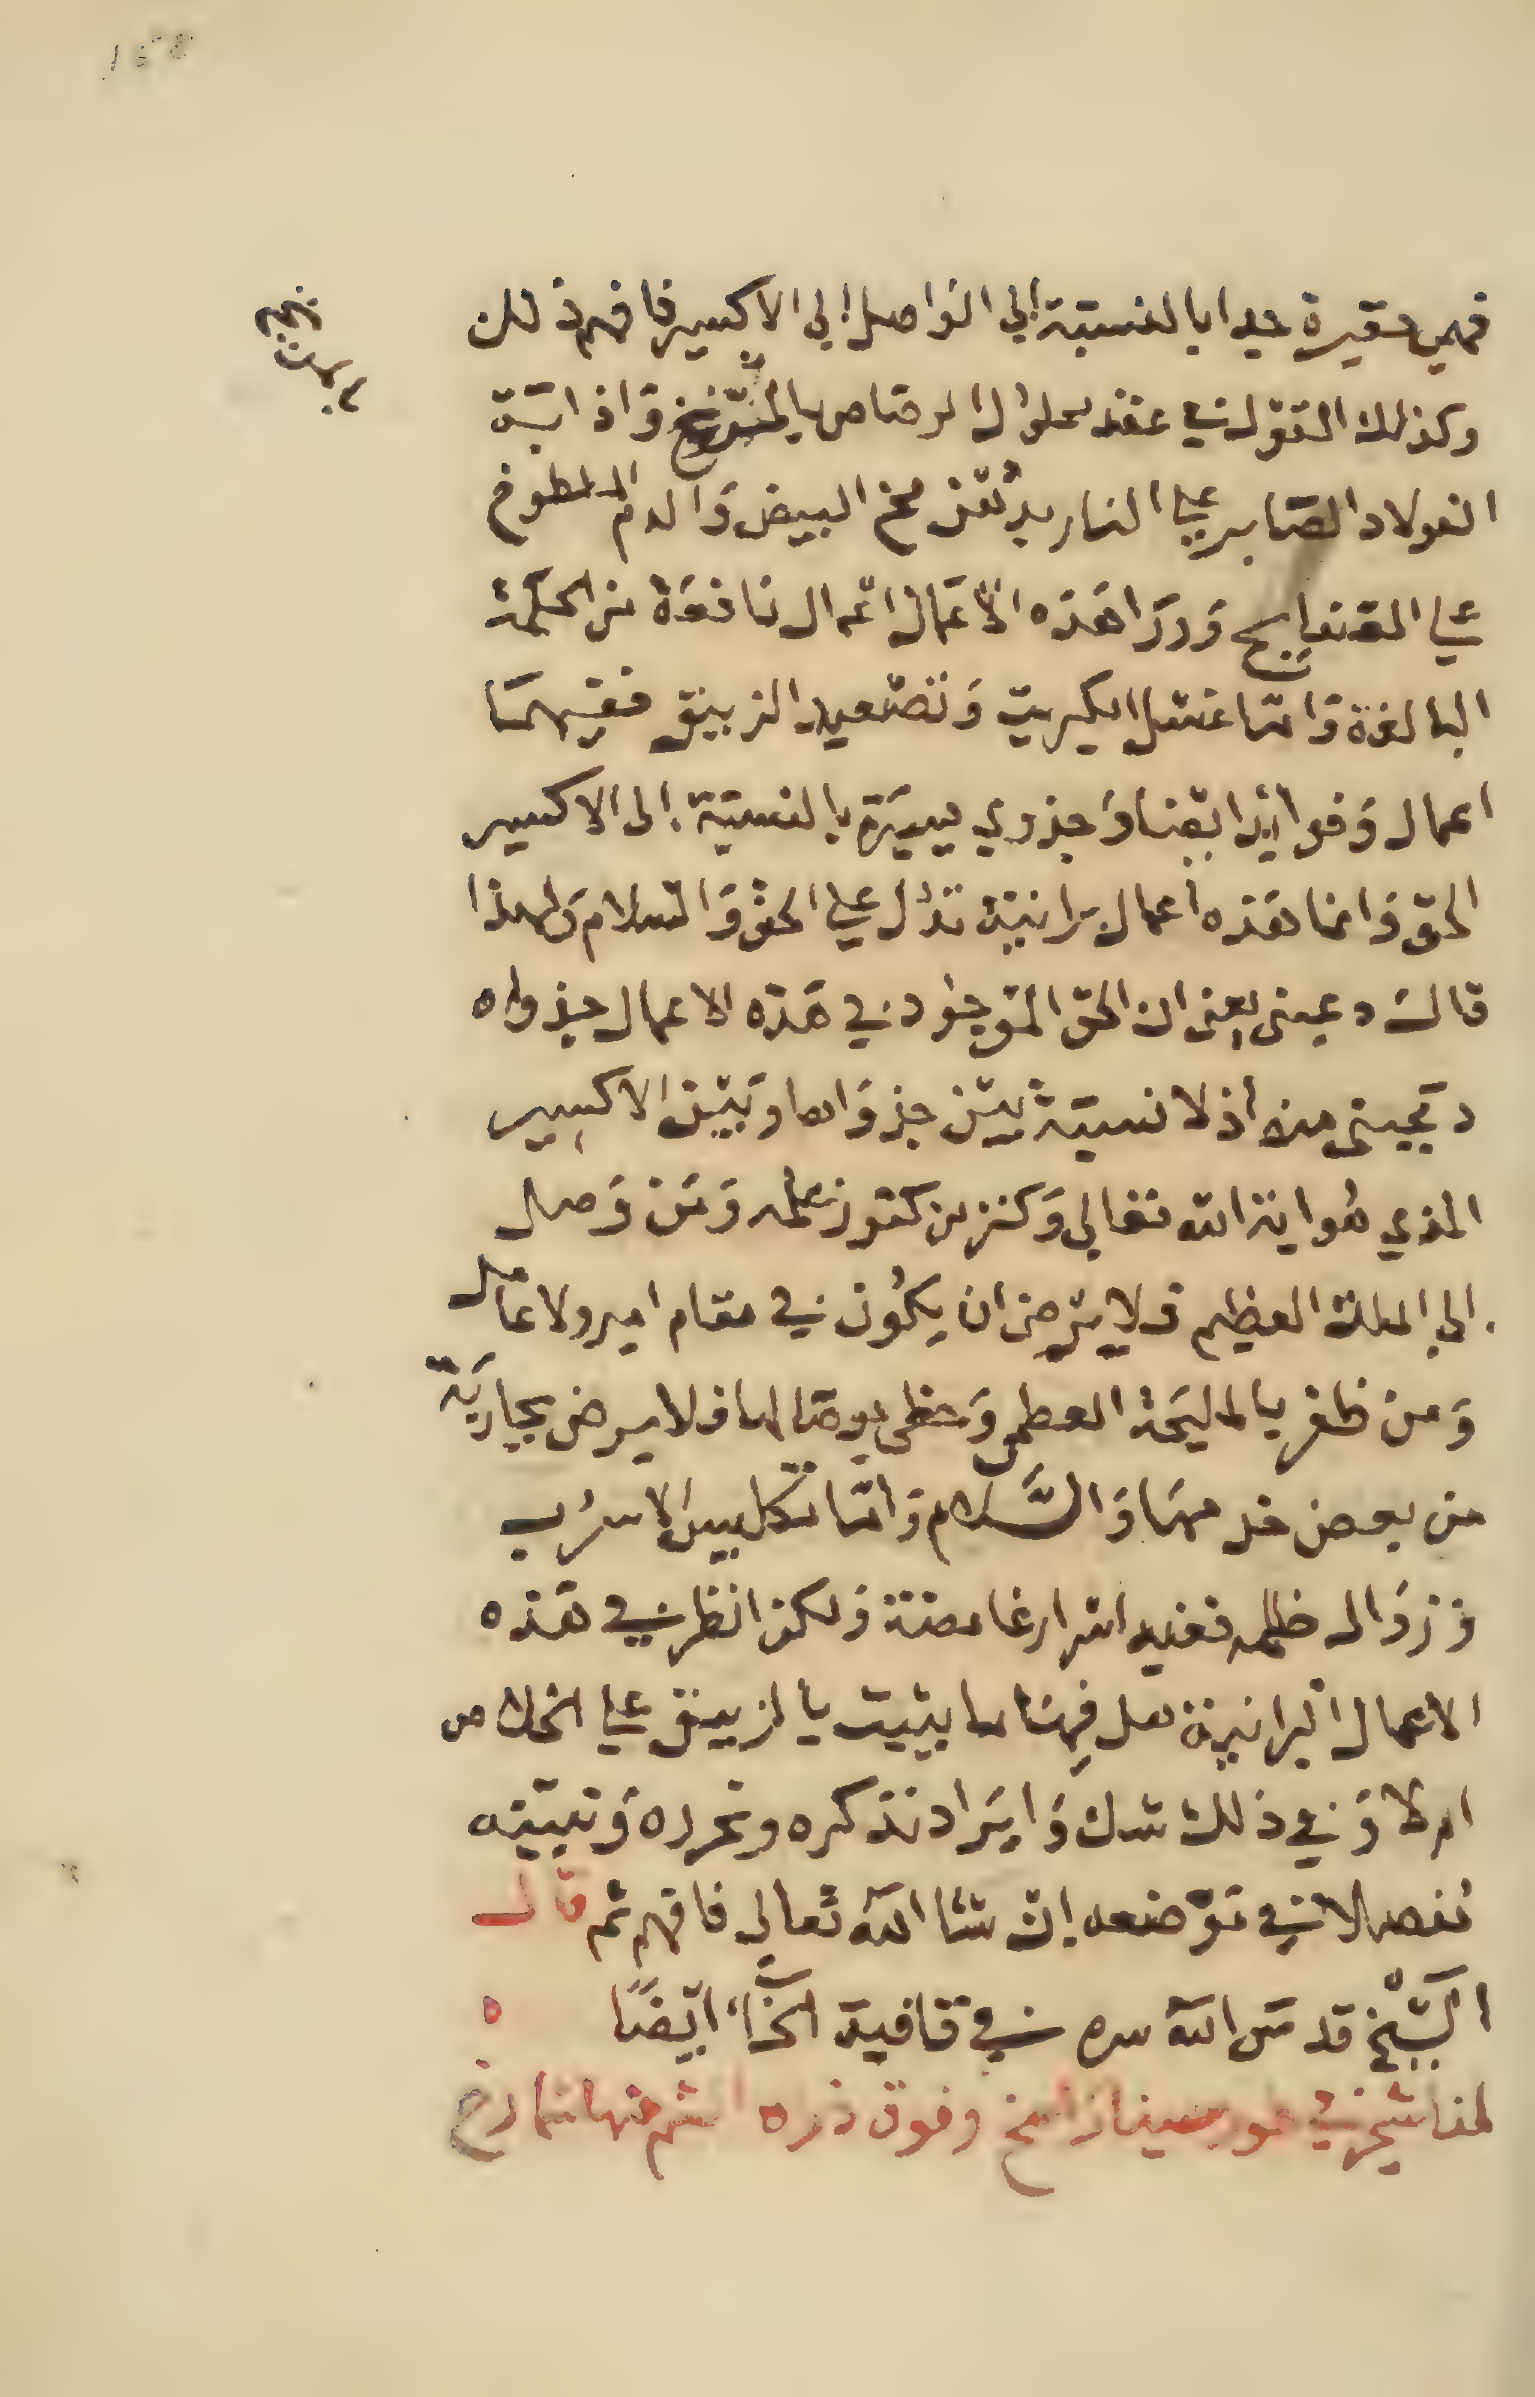 فهي حقيرة جدا بالنسبة إلى الواصل إلى الاكسير فافهم ذلك
وكذلك القول في عقد محلول الرصاص بالمنريخ واذابة
الفولاد الصابر على النار بدهن مخ البيض والدم الملطوخ
على القنداريح وردا هذه الاعمال اعمال نافعة من الحكمة
البالغة واما غسل الكبريت وتصعيد الزيبق ففيهما
اعمال وفوايد ايضا وجدوي يسيرة بالنسبة إلى الاكسير
الحق وانما هذه اعمال برانية تدل على الحق والسلام ولهذا
قال دعيني يعني ان الحق الموجود في هذه الاعمال جدواه
دعيني منه اذ لا نسبة بين جدواها وبين الاكسير
الذي هو اية الله تعالى وكنز من كنوز علمه ومن وصل
الى الملك العظيم فلا يرضى ان يكون في مقام امير ولا عامل
ومن ظفر بالمليحة العظمى وحظى بوصالها فلا يرضى بجارية
من بعض خدمها والسلام واما تكليس الاسرب
وزوال ظلمه ففيه اسرار غامضة ولكن انظر في هذه
الاعمال البرانية هل فيها ما يثبت بالزيبق على الخلاص
ام لا وفي ذلك شك وايراد نذكره ونحرره ونبينه
مفصلا في موضعه إن شا الله تعالى فافهم ثم قال
الشيخ قدس الله سره في قافية الخاء ايضا ه
لنا شجر في طور سينا راسخ وفوق ذراه الشم منها شمارخ